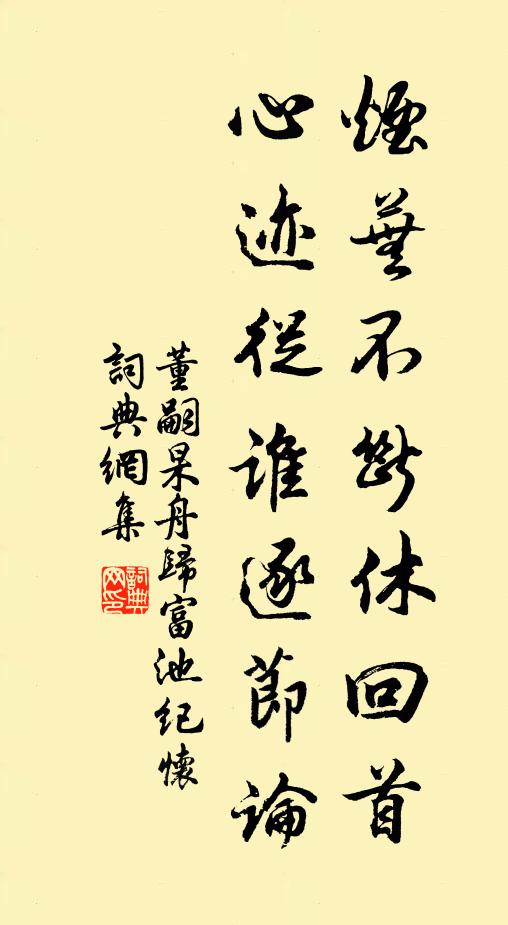 煙蕪不斷休回首
心迹從誰逐莭論
董嗣杲舟歸富池紀懷
詞典網集
詞典网印